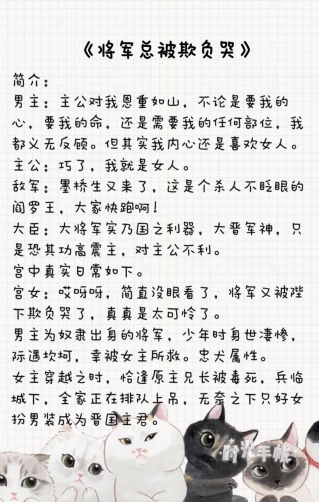 《将军总被欺负哭》
简介：
男主：主公对我恩重如山，不论是要我的
心，要我的命，还是需要我的任何部位，我
都义无反顾。但其实我内心还是喜欢女人。
主公：巧了，我就是女人。
敌军：墨桥生又来了，这是个杀人不眨眼的
阎罗王，大家快跑啊！
大臣：大将军实乃国之利器，大晋军神，只
是恐其功高震主，对主公不利。
宫中真实日常如下。
宫女：哎呀呀，简直没眼看了，将军又被陛
下欺负哭了，真真是太可怜了。
男主为奴隶出身的将军，少年时身世凄惨，
际遇坎坷，幸被女主所救。忠犬属性。
女主穿越之时，恰逢原主兄长被毒死，兵临
城下，全家正在排队上吊，无奈之下只好女
扮男装成为晋国主君。
时光手帐